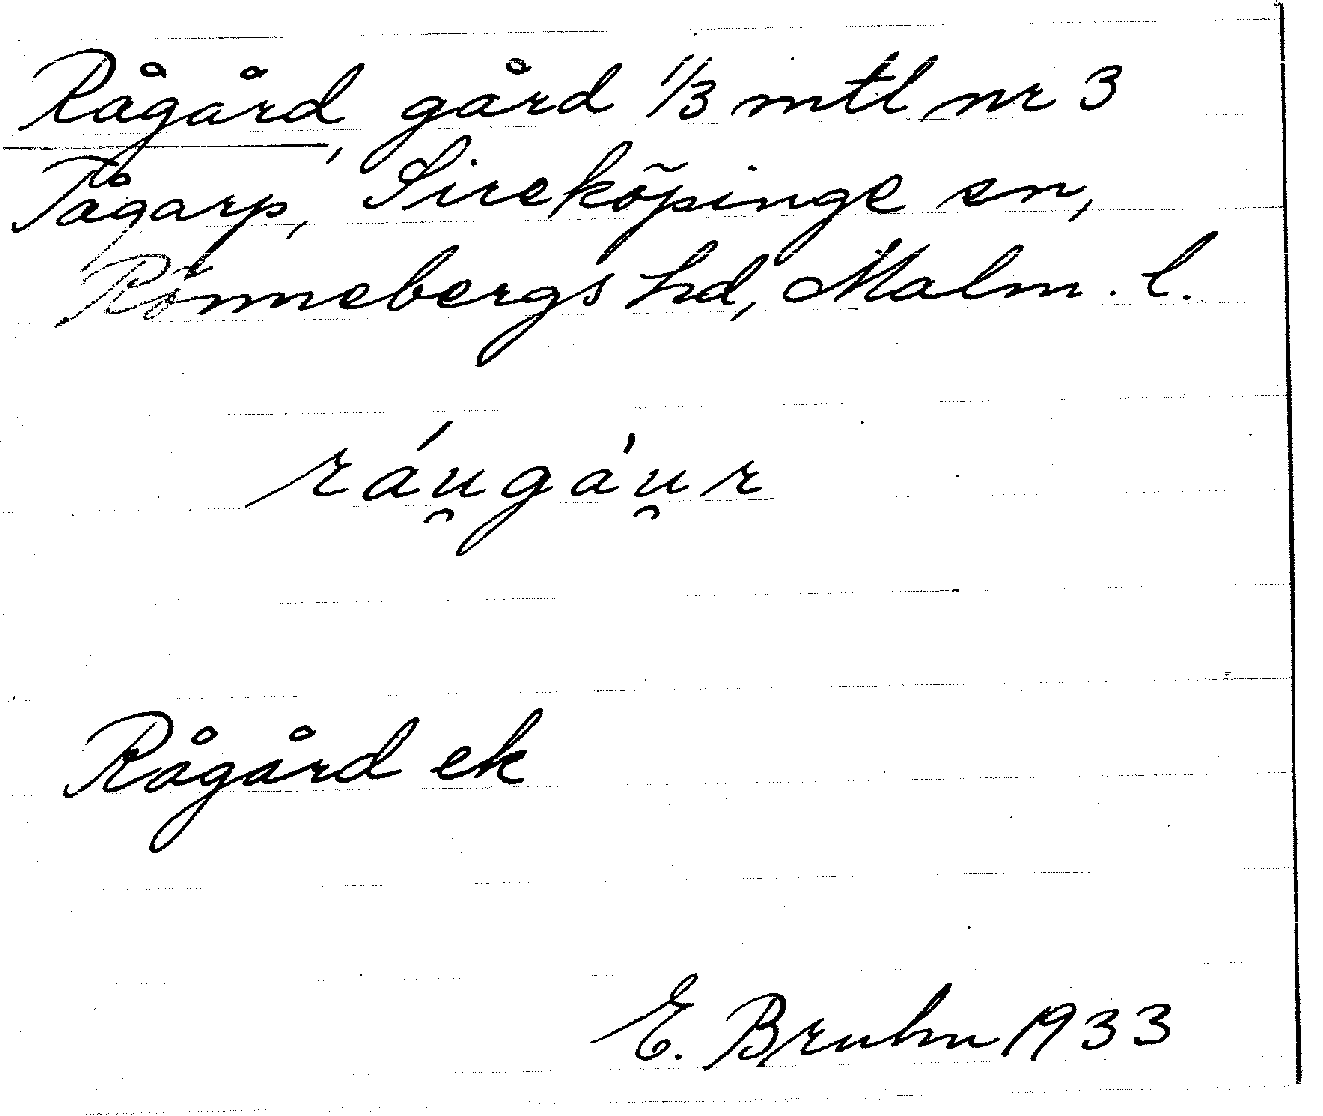 Rågård, gård 1/3 mtl nr 3
Tågarp, Sireköpinge sn,
Rönnebergs hd, Malm. l.
ráu̯gàu̯r
Rågård ek
E. Bruhn 1933